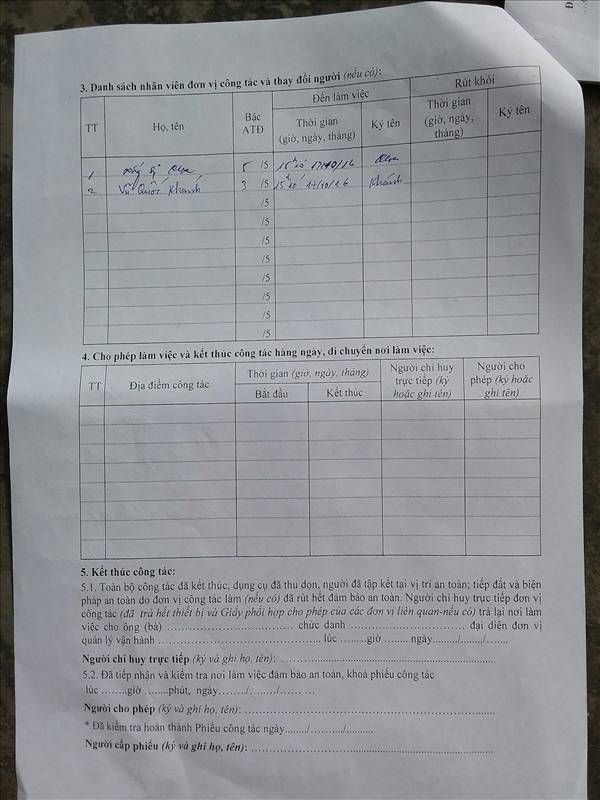 3. Danh sách nhân viên đơn vị công tác và thay đổi người (nếu có):
TT
Họ, tên
Bậc ATĐ
Đến làm việc
Rút khỏi
Thời gian (giờ, ngày, tháng)
Ký tên
Thời gian (giờ, ngày, tháng)
Ký tên
1 5 /5
2 Vũ Quốc Khánh 3 /5 Khánh
/5
/5
/5
/5
/5
/5
/5
/5
4. Cho phép làm việc và kết thúc công tác hàng ngày, di chuyển nơi làm việc:
TT
Địa điểm công tác
Thời gian (giờ, ngày, tháng)
Bắt đầu
Kết thúc
Người chỉ huy trực tiếp (ký hoặc ghi tên)
Người cho phép (ký hoặc ghi tên)
5. Kết thúc công tác:
5.1. Toàn bộ công tác đã kết thúc, dụng cụ đã thu dọn, người đã tập kết tại vị trí an toàn; tiếp đất và biện
pháp an toàn do đơn vị công tác làm (nếu có) đã rút hết đảm bảo an toàn. Người chỉ huy trực tiếp đơn vị
công tác (đã trả hết thiết bị và Giấy phối hợp cho phép của các đơn vị liên quan-nếu có) trả lại nơi làm
việc cho ông (bà) ................................ chức danh ............................ đại diện đơn vị
quản lý vận hành ........................................ lúc .........giờ ........ ngày........./......../.......
Người chỉ huy trực tiếp (ký và ghi họ, tên): ......................................................
5.2. Đã tiếp nhận và kiểm tra nơi làm việc đảm bảo an toàn, khoá phiếu công tác
lúc ........giờ ........phút, ngày......../........./...........
Người cho phép (ký và ghi họ, tên): ..............................................................
* Đã kiểm tra hoàn thành Phiếu công tác ngày......./........../..........
Người cấp phiếu (ký và ghi họ, tên): .............................................................